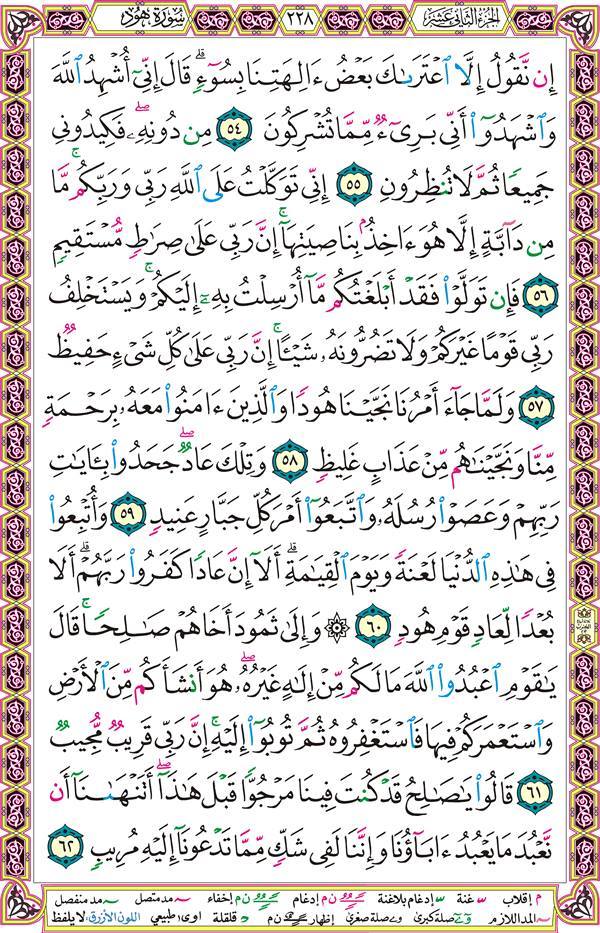 الجزء الثاني عشر ٢٢٨ سورة هود
إِن نَّقُولُ إِلَّا ٱعْتَرَىٰكَ بَعْضُ ءَالِهَتِنَا بِسُوٓءٍۗ قَالَ إِنِّىٓ أُشْهِدُ ٱللَّهَ
وَٱشْهَدُوٓا۟ أَنِّى بَرِىٓءٌ مِّمَّا تُشْرِكُونَ ٥٤ مِن دُونِهِۦۖ فَكِيدُونِى
جَمِيعًا ثُمَّ لَا تُنظِرُونِ ٥٥ إِنِّى تَوَكَّلْتُ عَلَى ٱللَّهِ رَبِّى وَرَبِّكُمۚ مَّا
مِن دَآبَّةٍ إِلَّا هُوَ ءَاخِذٌۢ بِنَاصِيَتِهَآۚ إِنَّ رَبِّى عَلَىٰ صِرَٰطٍ مُّسْتَقِيمٍ
٥٦ فَإِن تَوَلَّوْا۟ فَقَدْ أَبْلَغْتُكُم مَّآ أُرْسِلْتُ بِهِۦٓ إِلَيْكُمْۚ وَيَسْتَخْلِفُ
رَبِّى قَوْمًا غَيْرَكُمْ وَلَا تَضُرُّونَهُۥ شَيْـًٔاۚ إِنَّ رَبِّى عَلَىٰ كُلِّ شَىْءٍ حَفِيظٌ
٥٧ وَلَمَّا جَآءَ أَمْرُنَا نَجَّيْنَا هُودًا وَٱلَّذِينَ ءَامَنُوا۟ مَعَهُۥ بِرَحْمَةٍ
مِّنَّا وَنَجَّيْنَٰهُم مِّنْ عَذَابٍ غَلِيظٍ ٥٨ وَتِلْكَ عَادٌۖ جَحَدُوا۟ بِـَٔايَٰتِ
رَبِّهِمْ وَعَصَوْا۟ رُسُلَهُۥ وَٱتَّبَعُوٓا۟ أَمْرَ كُلِّ جَبَّارٍ عَنِيدٍ ٥٩ وَأُتْبِعُوا۟
فِى هَٰذِهِ ٱلدُّنْيَا لَعْنَةً وَيَوْمَ ٱلْقِيَٰمَةِۗ أَلَآ إِنَّ عَادًا كَفَرُوا۟ رَبَّهُمْۗ أَلَا
بُعْدًا لِّعَادٍ قَوْمِ هُودٍ ٦٠ ۞ وَإِلَىٰ ثَمُودَ أَخَاهُمْ صَٰلِحًاۚ قَالَ
يَٰقَوْمِ ٱعْبُدُوا۟ ٱللَّهَ مَا لَكُم مِّنْ إِلَٰهٍ غَيْرُهُۥۖ هُوَ أَنشَأَكُم مِّنَ ٱلْأَرْضِ
وَٱسْتَعْمَرَكُمْ فِيهَا فَٱسْتَغْفِرُوهُ ثُمَّ تُوبُوٓا۟ إِلَيْهِۚ إِنَّ رَبِّى قَرِيبٌ مُّجِيبٌ
٦١ قَالُوا۟ يَٰصَٰلِحُ قَدْ كُنتَ فِينَا مَرْجُوًّا قَبْلَ هَٰذَآۖ أَتَنْهَىٰنَآ أَن
نَّعْبُدَ مَا يَعْبُدُ ءَابَآؤُنَا وَإِنَّنَا لَفِى شَكٍّ مِّمَّا تَدْعُونَآ إِلَيْهِ مُرِيبٍ ٦٢
م إقلاب غنة إدغام بلاغنة ن م إدغام ن م إخفاء مد متصل مد منفصل
المد اللازم صلة كبرى صلة صغرى إظهار ن م قلقلة اوى طبيعي اللون الأزرق: لا يلفظ